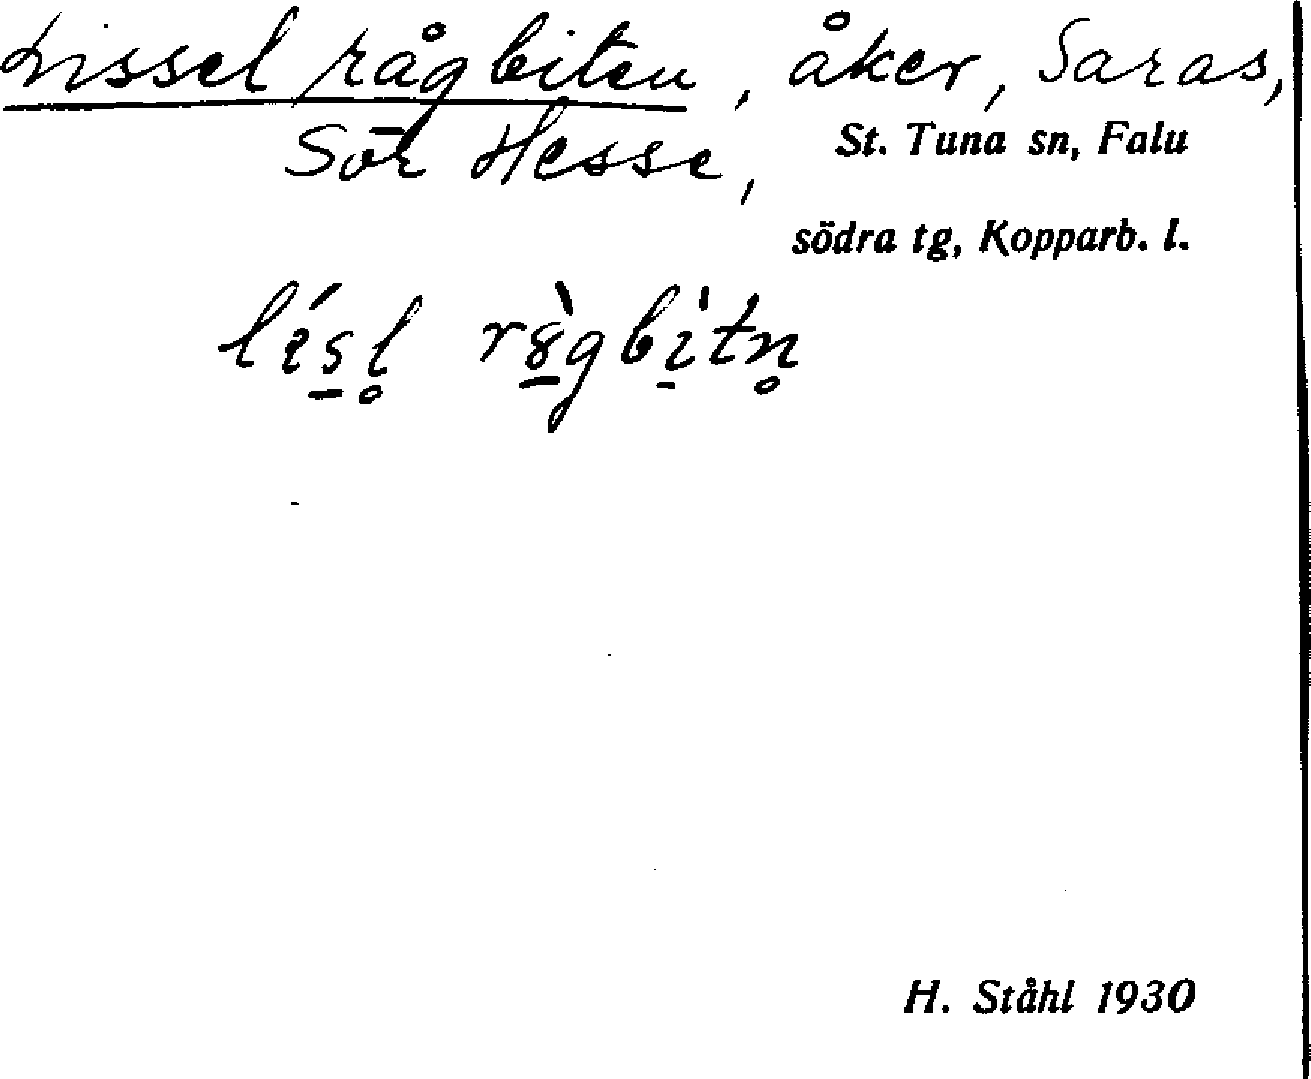 Lissel rågbiten, åker, Saras,
Sör Hesse, St. Tuna sn, Falu
södra tg, Kopparb. l.
lísl rȣ̀gbìtn̥
H. Ståhl 1930